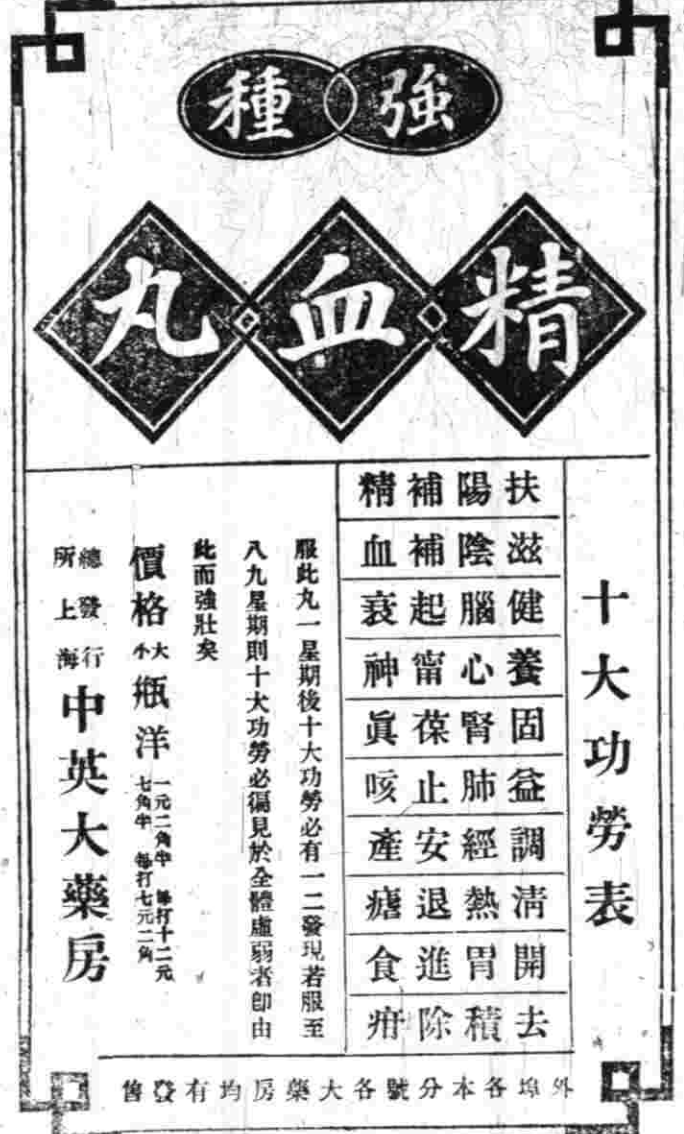 強種
精血丸
十大功勞表
扶陽補精
滋陰補血
健腦起衰
養心甯神
固腎葆眞
益肺止咳
調經安產
清熱退瘧
開胃進食
去積除疳
服此丸一星期後十大功勞必有一二發現若服至
八九星期則十大功勞必徧見於全體虛弱者卽由
此而強壯矣
價格大瓶洋一元二角半 每打十二元
小瓶洋七角半 每打七元二角
總發行所上海中英大藥房
外埠各本分號各大藥房均有發售